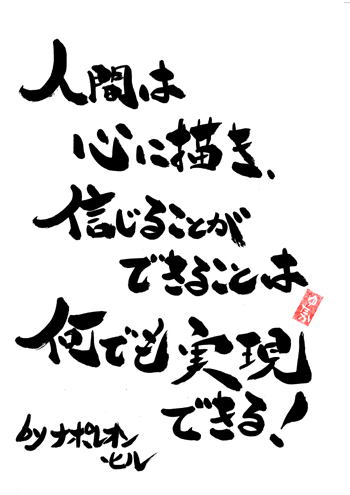 人間は
心に描き、
信じることが
できることは
何でも実現
できる!
by ナポレオン
・ヒル
ゆたか